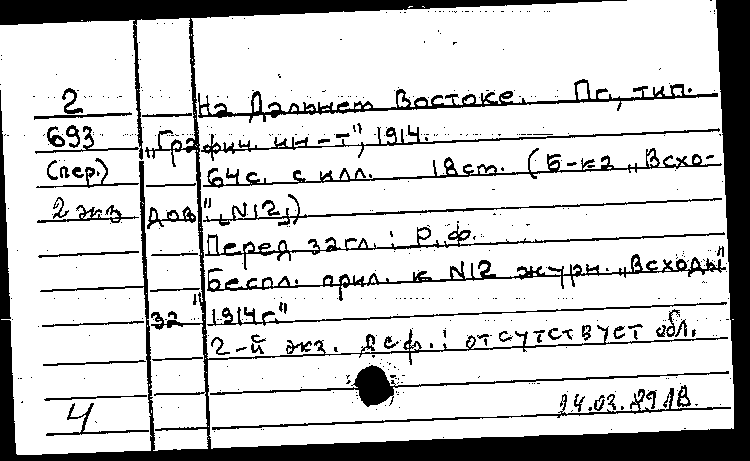 2
На Дальнем Востоке. Пг., тип.
693
„Графич. ин-т", 1914.
(пер.)
64с. с илл. 18см. (Б-ка „Всхо-
2 экз
дов", [N12])
Перед загл.: Р.Ф.
Беспл. прил. к N12 журн. „Всходы"
за "1914г."
2-й экз. деф.: отсутствует обл.
4
14.03.89 ЛВ.